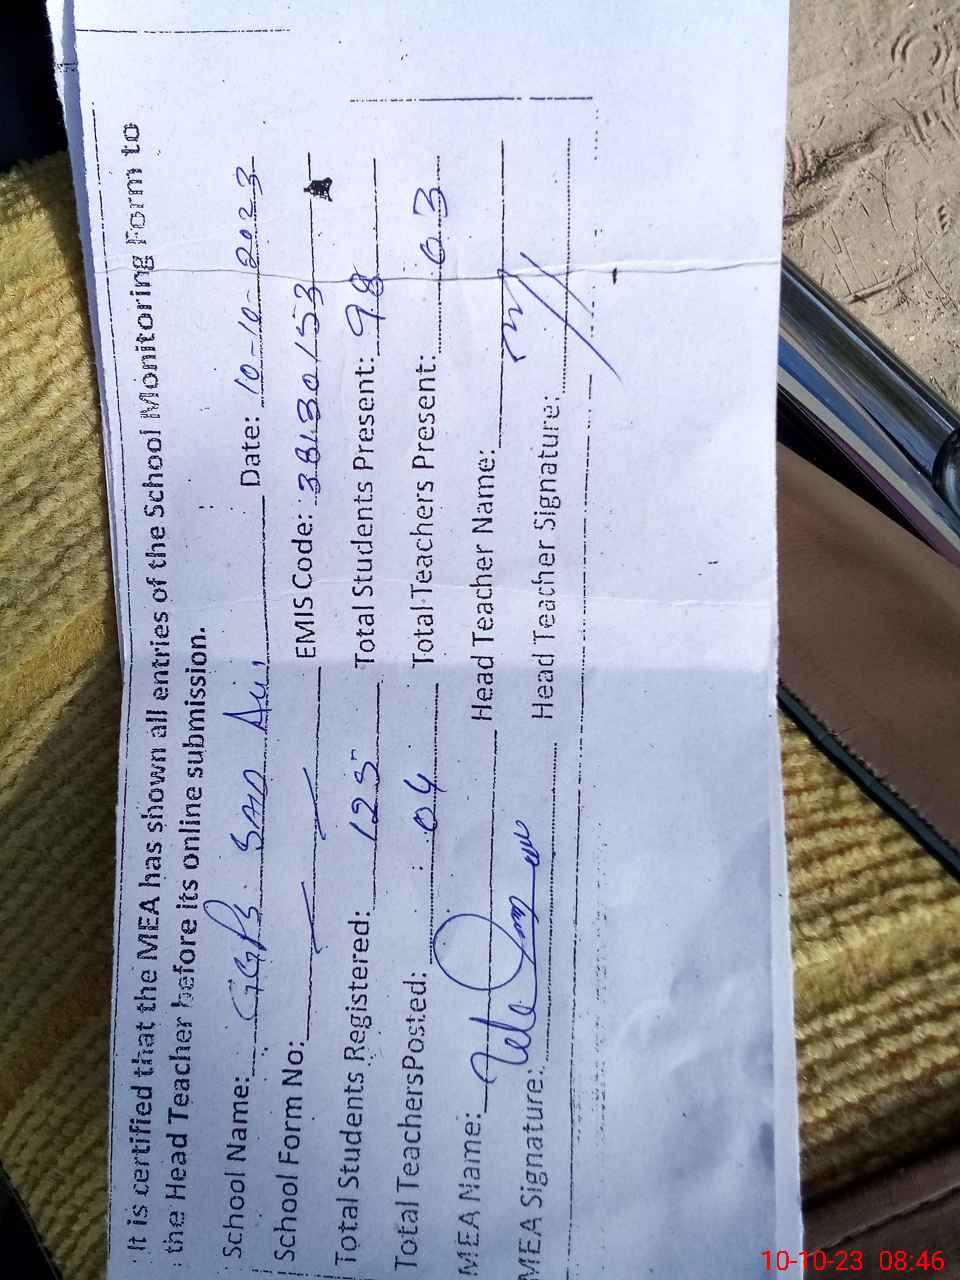 It is certified that the MEA has shown all entries of the School Monitoring Form to
the Head Teacher before its online submission.
School Name: GGPS SAID ALI Date: 10-10-2023
School Form No: EMIS Code: 38130153
Total Students Registered: 125 Total Students Present: 98
Total TeachersPosted: 04 Total Teachers Present: 03
MEA Name: Head Teacher Name:
MEA Signature: Head Teacher Signature:
10-10-23 08:46